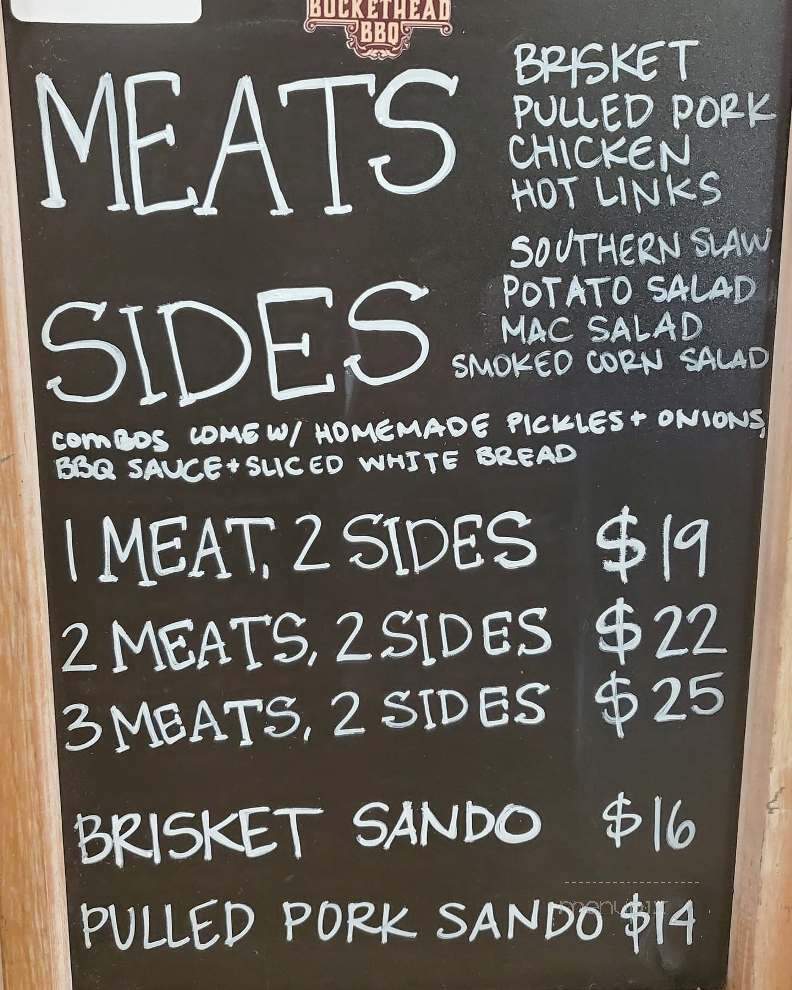 BUCKETHEAD
BBQ
MEATS
BRISKET
PULLED PORK
CHICKEN
HOT LINKS
SIDES
SOUTHERN SLAW
POTATO SALAD
MAC SALAD
SMOKED CORN SALAD
COMBOS COME W/ HOMEMADE PICKLES + ONIONS,
BBQ SAUCE + SLICED WHITE BREAD
1 MEAT, 2 SIDES $19
2 MEATS, 2 SIDES $22
3 MEATS, 2 SIDES $25
BRISKET SANDO $16
PULLED PORK SANDO $14